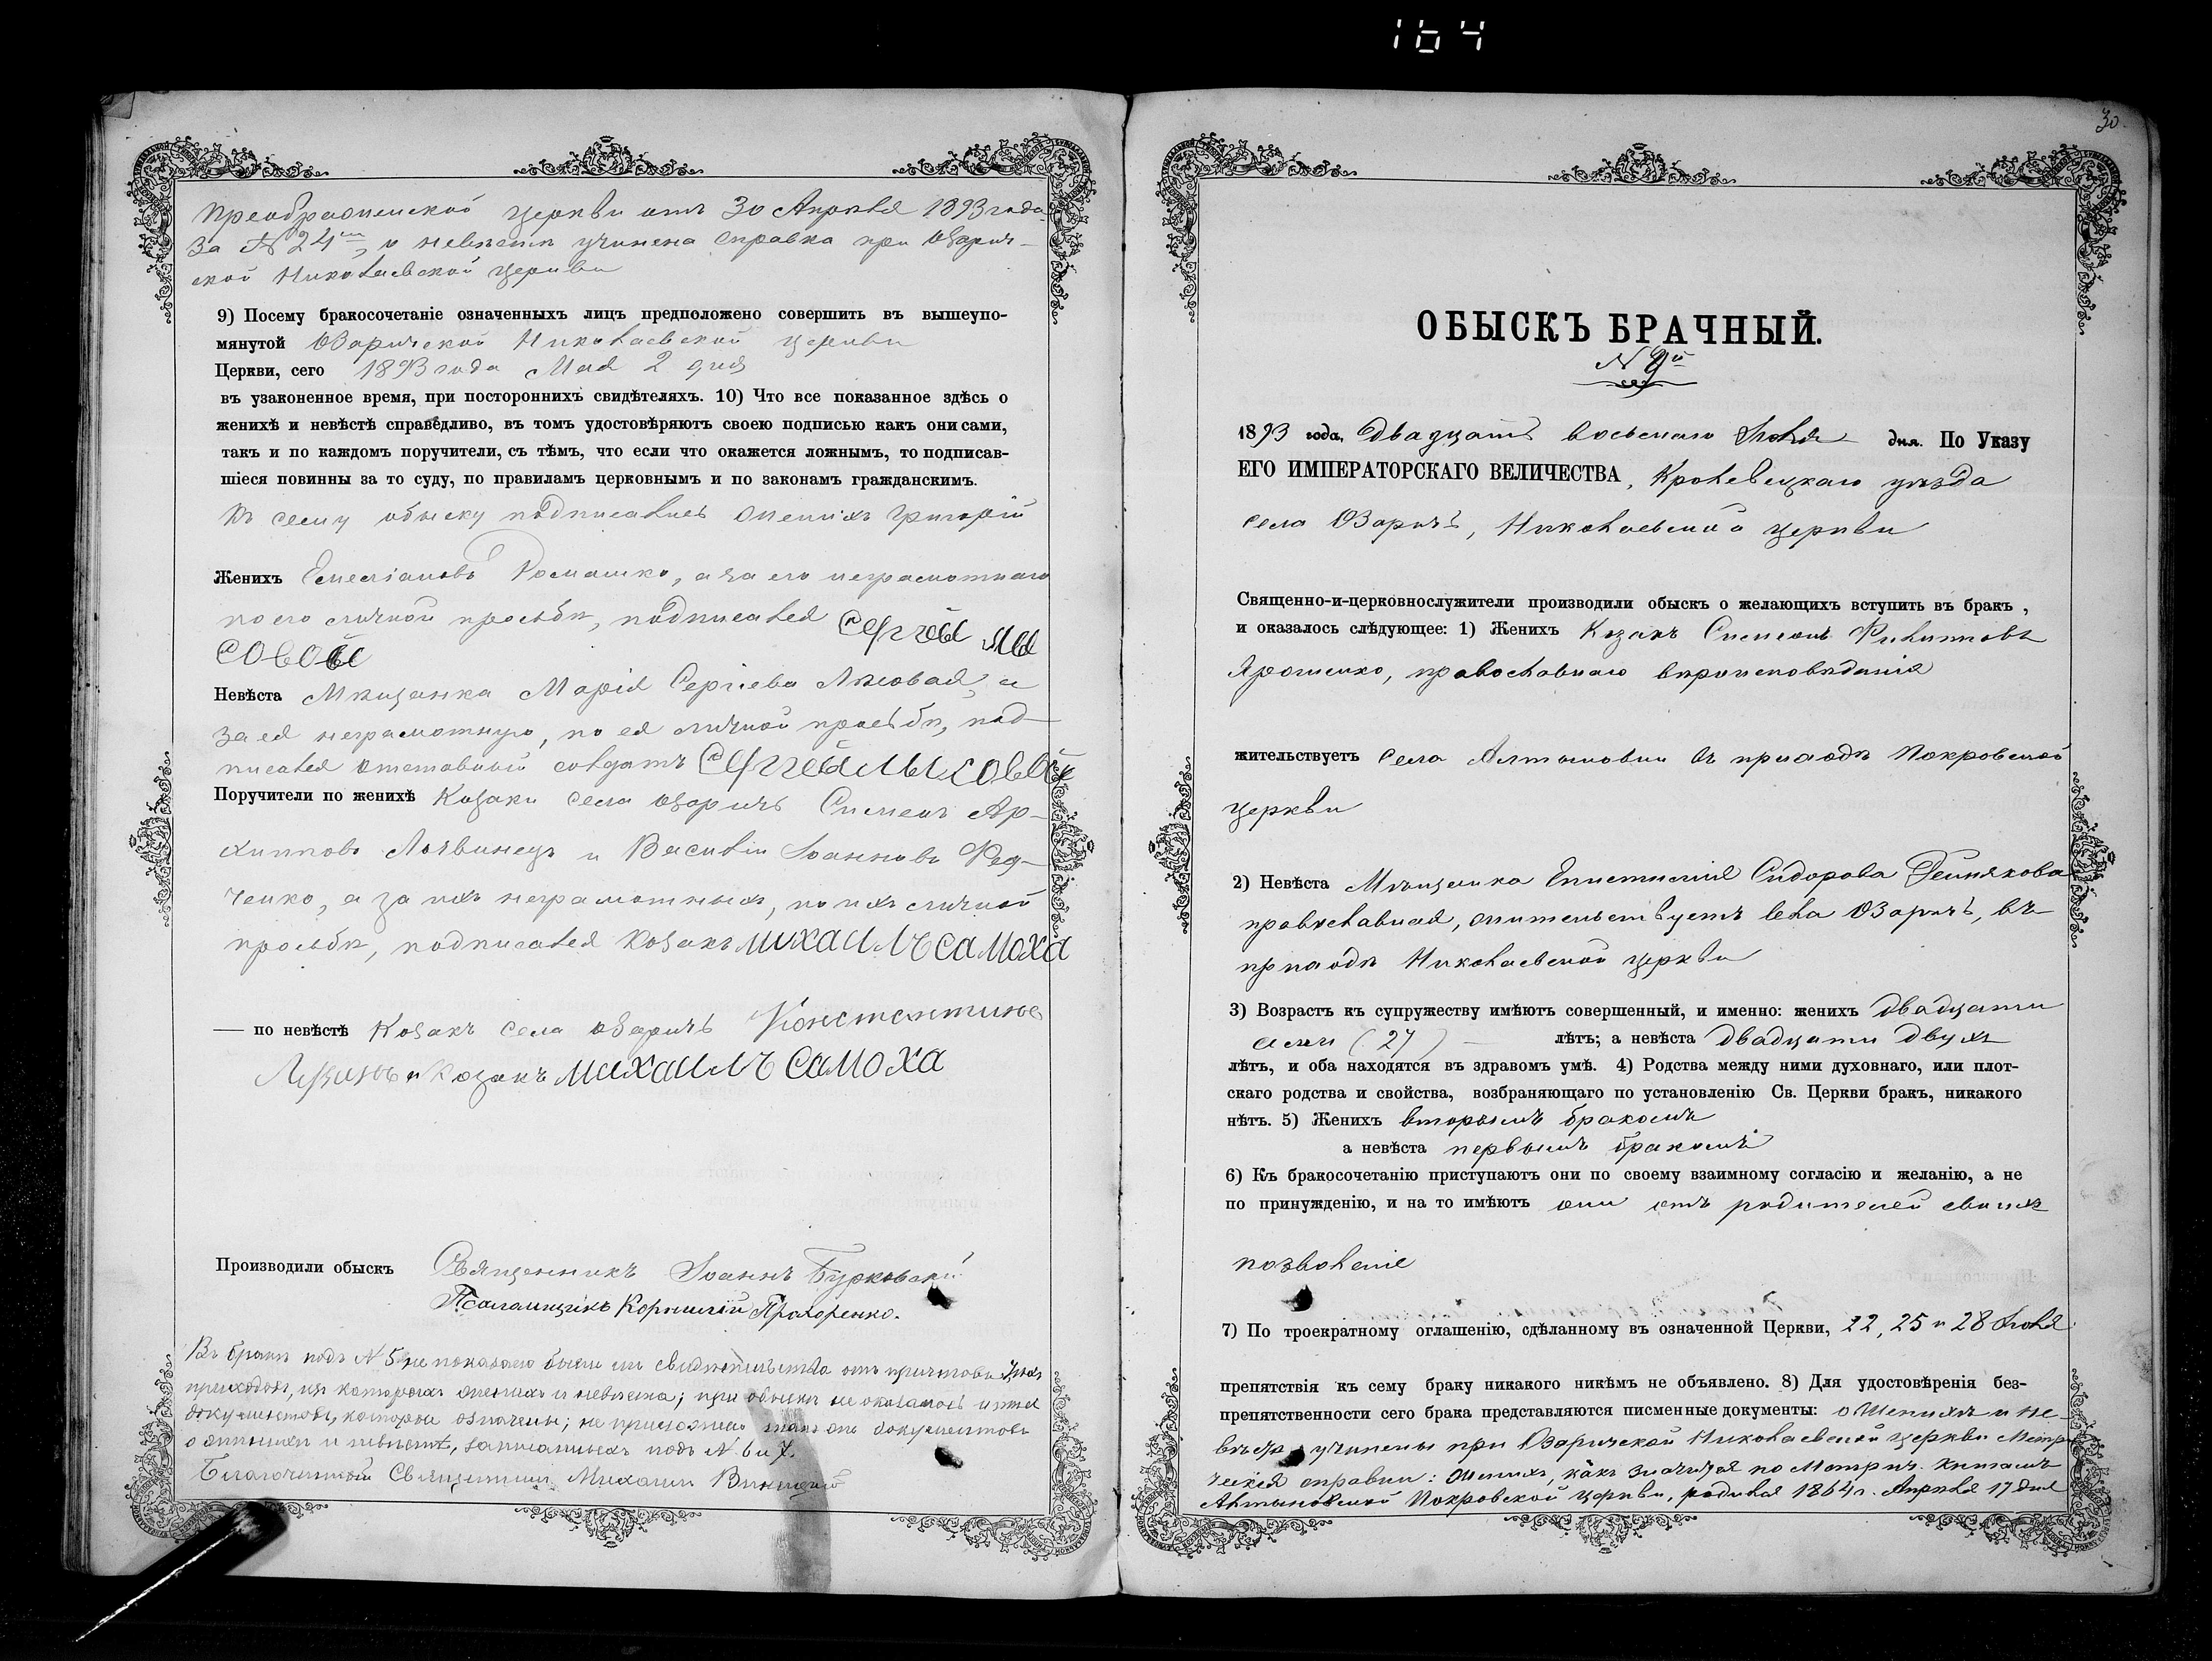 164
Преображенской церкви отъ 30 Апрѣля 1893 года
за № 24м, о невѣстѣ учинена справка при Озарич-
ской Николаевской церкви
9) Посему бракосочетаніе означенныхъ лицъ предположено совершить въ вышеупо-
мянутой Озаричской Николаевской церкви
Церкви, сего 1893 года Мая 2 дня
въ узаконенное время, при постороннихъ свидѣтеляхъ. 10) Что все показанное здѣсь о
женихѣ и невѣстѣ справедливо, въ томъ удостовѣряютъ своею подписью какъ они сами,
такъ и по каждомъ поручители, съ тѣмъ, что если что окажется ложнымъ, то подписав-
шіеся повинны за то суду, по правиламъ церковнымъ и по законамъ гражданскимъ.
Къ сему обыску подписались женихъ Григорій
Женихъ Емеліановъ Ромашко, а за его неграмотнаго
по его личной просьбѣ, подписался Сергѣй Лы
совой
Невѣста Мѣщанка Марія Сергіева Лысовая, а
за ея неграмотную, по ея личной просьбѣ, под-
писался отставной солдатъ Сергѣй Лысовой
Поручители по женихѣ Козаки села Озаричъ Симеонъ Ар-
хиповъ Литвинецъ и Василій Іоанновъ Фед-
ченко, а за ихъ неграмотныхъ, по ихъ личной
просьбѣ, подписался козакъ михаилъ самоха
— по невѣстѣ Козакъ села Озаричъ Константинъ
и Козакъ михаилъ самоха
Производили обыскъ Священникъ Іоаннъ Бурковскій
Псаломщикъ Корнилій Прохоренко.
Въ бракѣ подъ № 5 не показано были ли свидѣтельства отъ причтовъ тѣхъ
приходовъ, изъ которыхъ женихъ и невѣста; при обыскѣ не оказалось и тѣхъ
документовъ, которые означены; не приложено также документовъ
о женихѣ и невѣстѣ, записанныхъ подъ № 6 и 7.
Благочинный Священникъ Михаилъ
30.
ОБЫСКЪ БРАЧНЫЙ.
N 9й
1893 года, двадцать восьмаго Іюля дня. По Указу
ЕГО ИМПЕРАТОРСКАГО ВЕЛИЧЕСТВА, Кролевецкаго уѣзда
села Озаричъ, Николаевской церкви
Священно-и-церковнослужители производили обыскъ о желающихъ вступить въ бракъ ,
и оказалось слѣдующее: 1) Женихъ Козакъ Симеонъ Филипповъ
Ярошенко, православнаго вѣроисповѣданія
жительствуетъ села Алтыновки въ приходѣ Покровской
церкви
2) Невѣста Мѣщанка Епистимія Сидорова
православная, жительствуетъ села Озаричъ, въ
приходѣ Николаевской церкви
3) Возрастъ къ супружеству имѣютъ совершенный, и именно: женихъ двадцати
семи (27) — лѣтъ; а невѣста двадцати двухъ
лѣтъ, и оба находятся въ здравомъ умѣ. 4) Родства между ними духовнаго, или плот-
скаго родства и свойства, возбраняющаго по установленію Св. Церкви бракъ, никакого
нѣтъ. 5) Женихъ вторымъ бракомъ
а невѣста первымъ бракомъ
6) Къ бракосочетанію приступаютъ они по своему взаимному согласію и желанію, а не
по принужденію, и на то имѣютъ они отъ родителей своихъ
позволеніе
7) По троекратному оглашенію, сдѣланному въ означенной Церкви, 22, 25 и 28 Іюля
препятствія къ сему браку никакого никѣмъ не объявлено. 8) Для удостовѣренія без-
препятственности сего брака представляются писменные документы: о женихѣ и не-
вѣстѣ учинены при Озаричской Николаевской церкви Метри
ческія справки: женихъ, какъ значится по Метрич. книгамъ
Алтыновской Покровской церкви, родился 1864 г. Апрѣля 17 дня